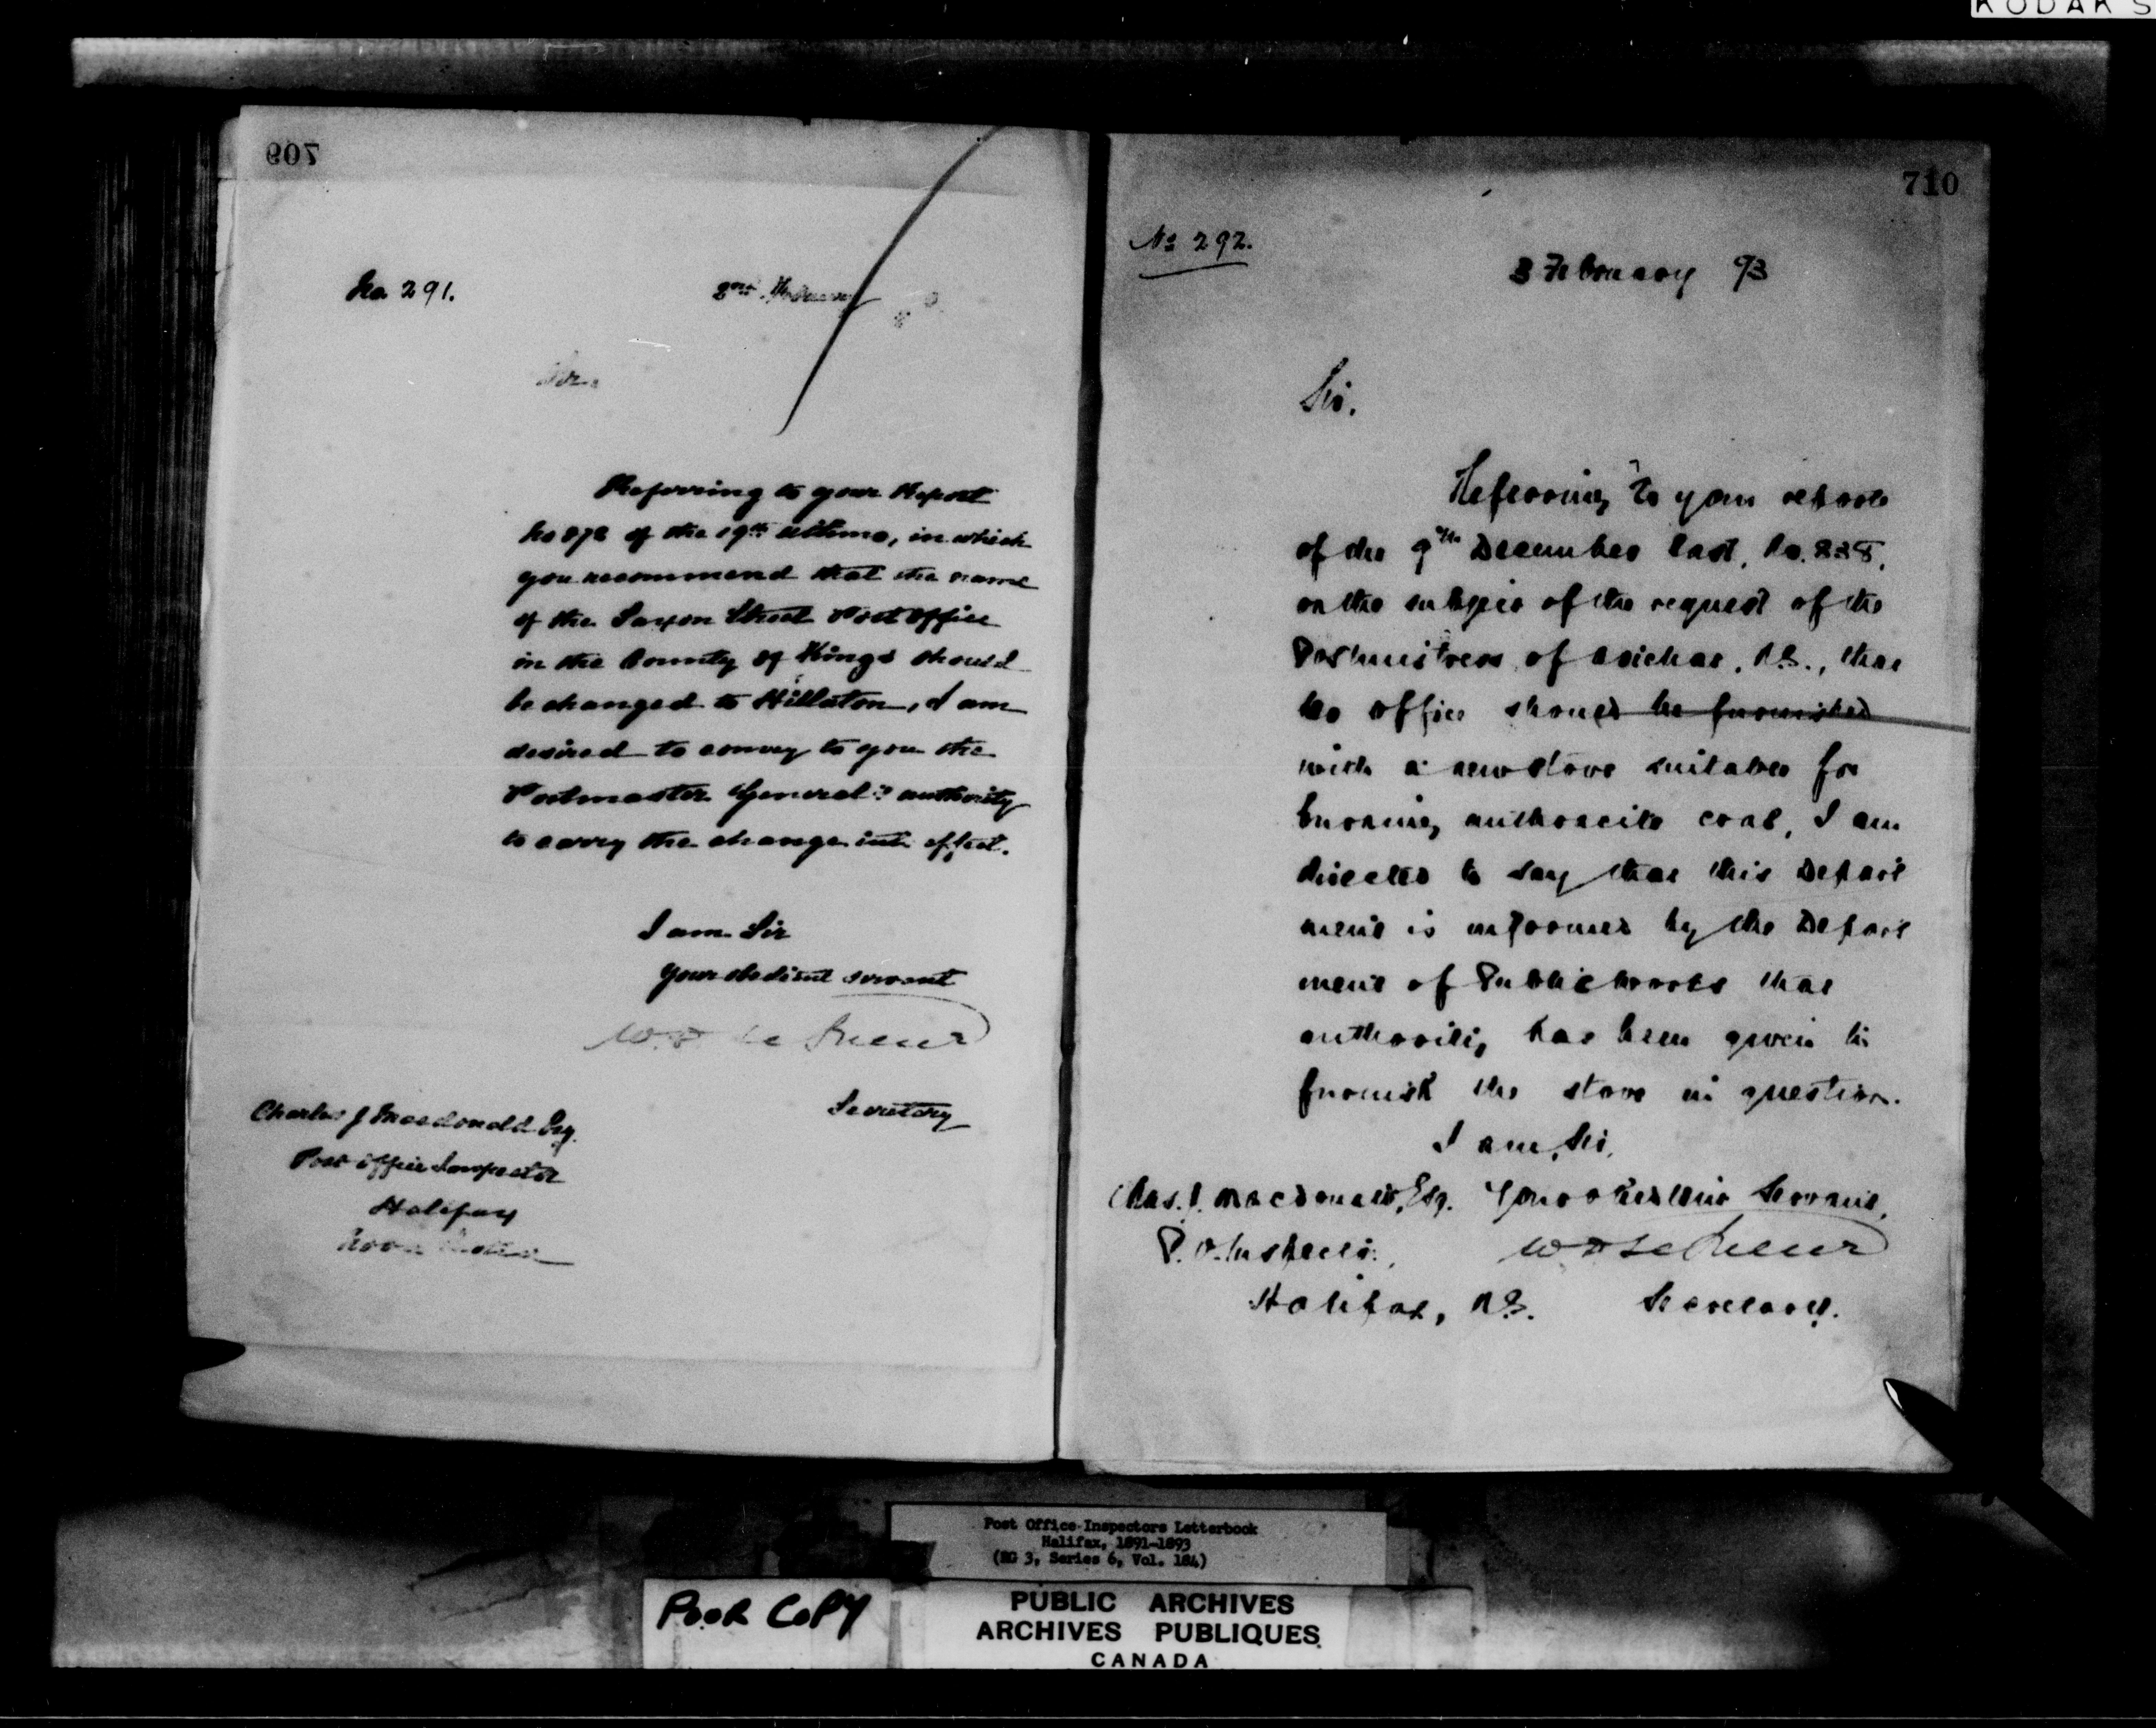 KODAK S
709
No 291.
2nd February
Sir.
Referring to your Report
No 872 of the 19th ultimo, in which
you recommend that the name
of the Saxon Street Post Office
in the County of Kings should
be changed to Hillaton, I am
desired to convey to you the
Postmaster General's authority
to carry the change into effect.
I am Sir
Your obedient servant
W. D. Le Sueur
Secretary
Charles J Macdonald Esq.
Post Office Inspector
Halifax
Nova Scotia
710
No 292.
3 February 93
Sir.
Referring to your report
of the 9th December last, No. 838,
on the subject of the request of the
Postmistress of Arichat, N.S., that
her office should be furnished
with a new stove suitable for
burning anthracite coal, I am
directed to say that this Depart
ment is informed by the Depart
ment of Public Works that
authority has been given to
furnish the stove in question.
I am, Sir,
Your obedient Servant,
Chas. J. Macdonald, Esq.
P. O. Inspector,
W D Le Sueur
Halifax, N.S.
Secretary.
Post Office Inspectors Letterbook
Halifax, 1891-1893
(RG 3, Series 6, Vol. 184)
POOR COPY
PUBLIC ARCHIVES
ARCHIVES PUBLIQUES
CANADA